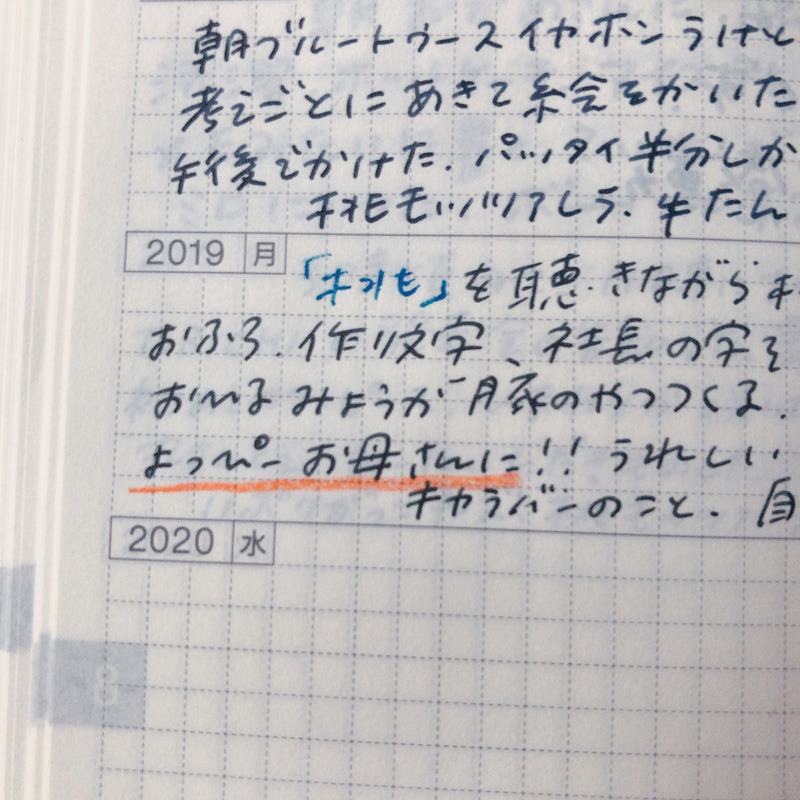 朝ブルートゥースイヤホンうけと
考えごとにあきて絵をかいた
午後でかけた.パッタイ半分しか
桃もバリアしう.牛たん
2019 月
「桃も」を聴きながら
おふろ.作り文字、社長の字を
おへるみょうが豚のやつつくる.
よっぺーお母さんに!!うれしい.
キャラバーのこと.自
2020 水
8